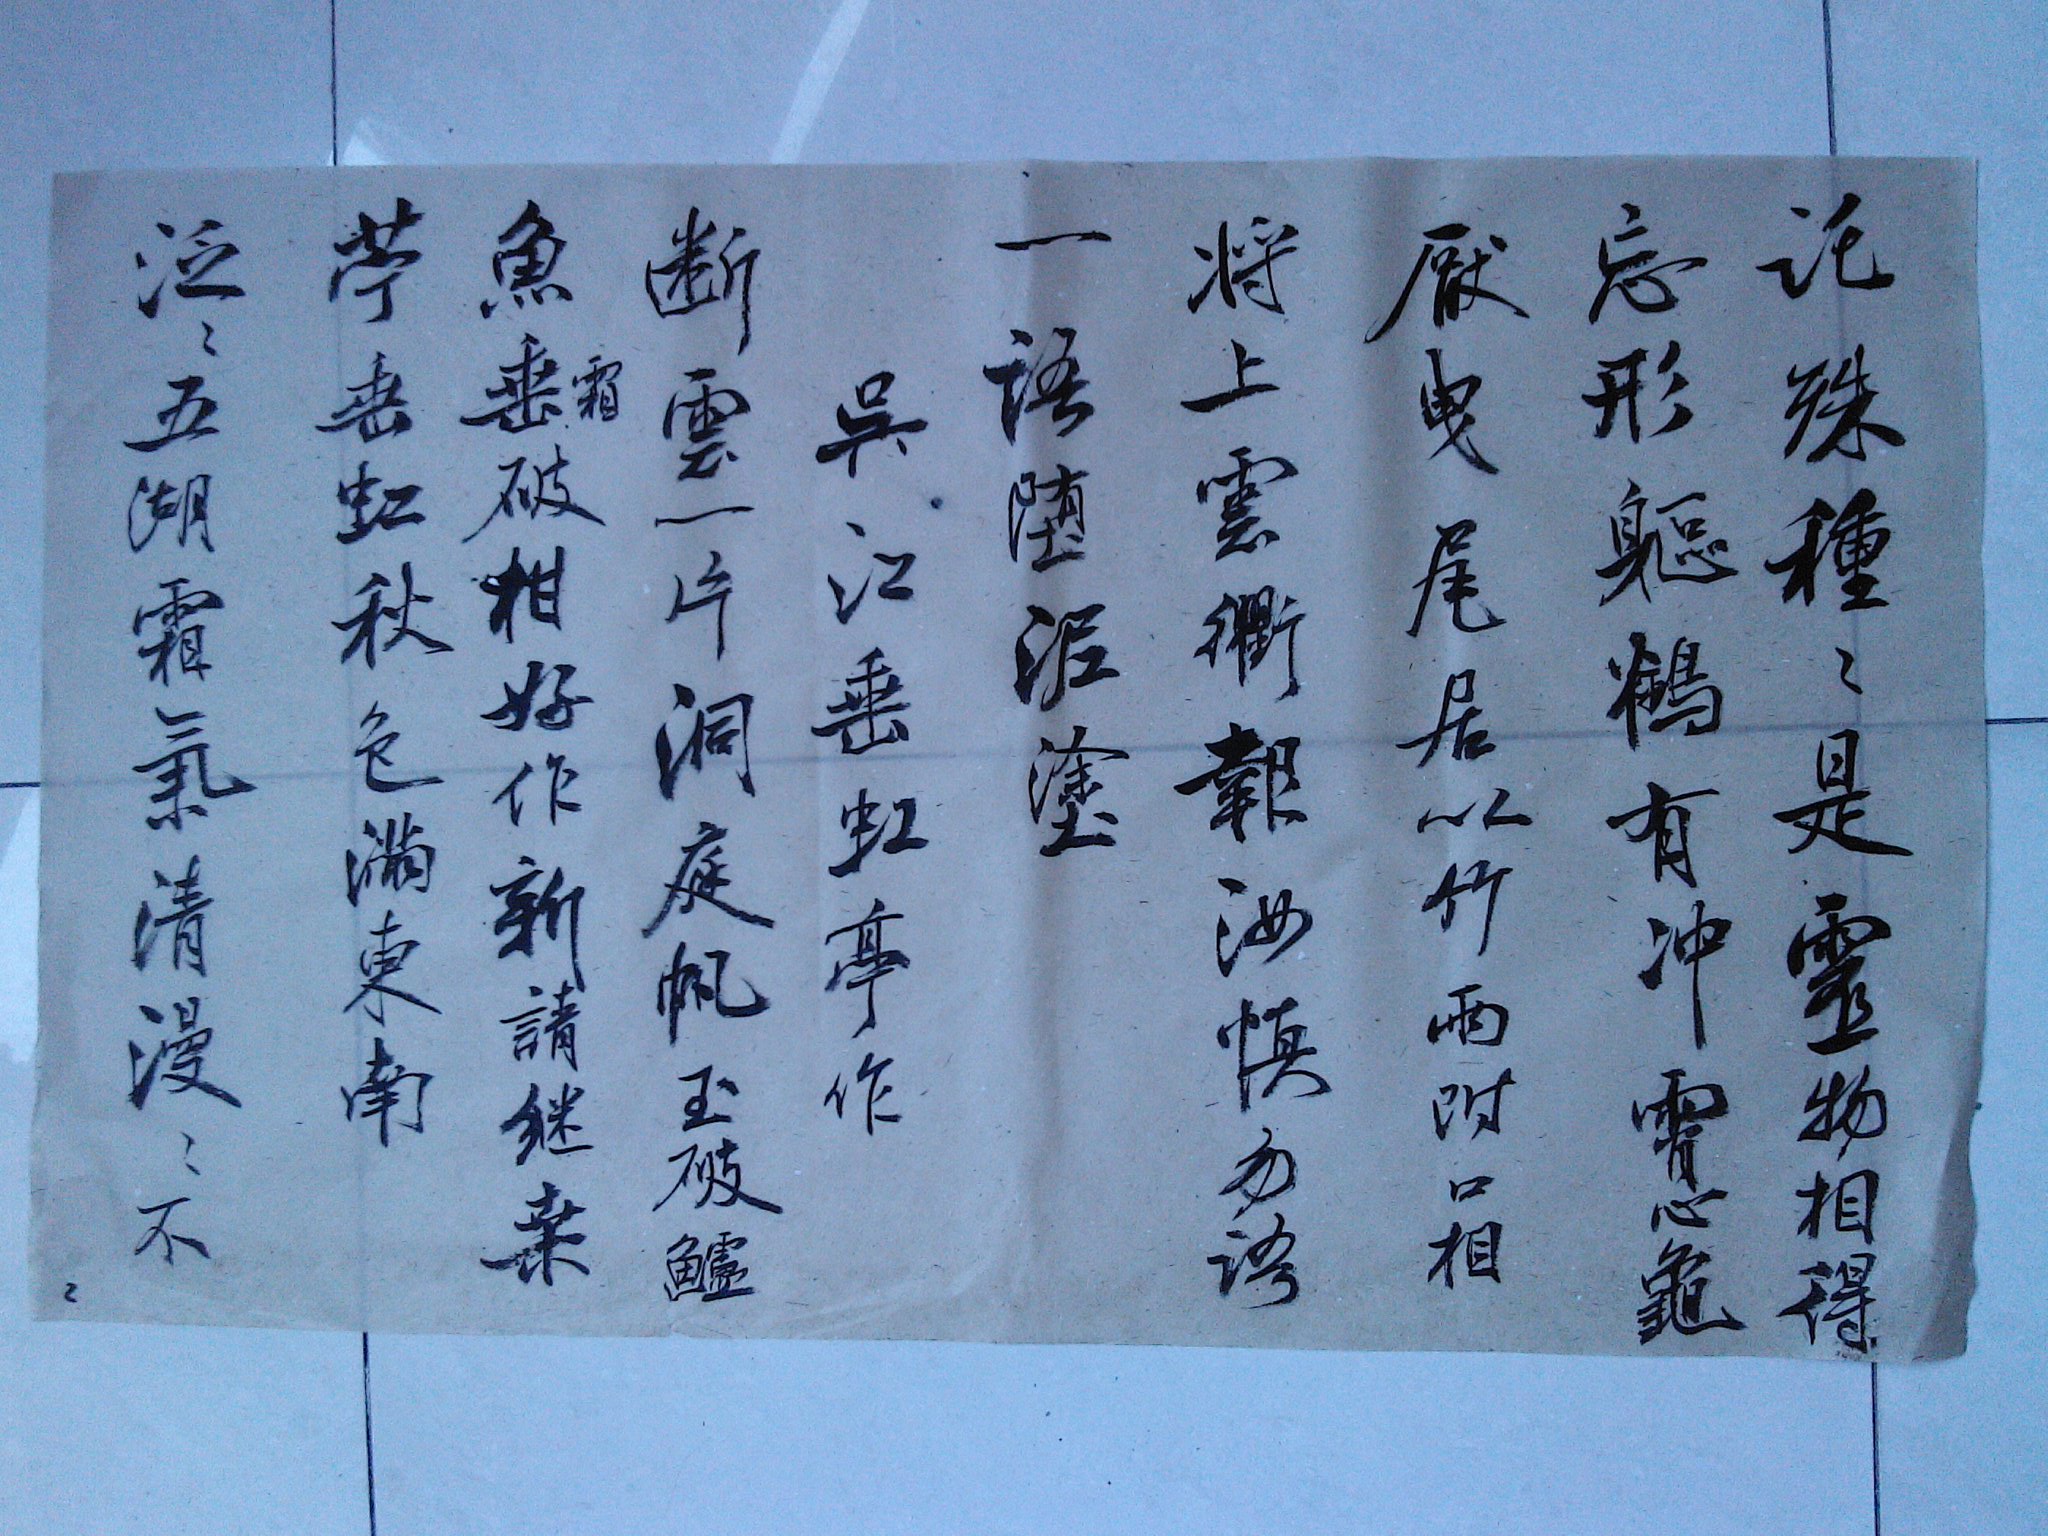 託殊種〻是靈物相得
忘形軀鶴有冲霄心龜
厭曳尾居以竹兩附口相
将上雲衢報汝慎勿語
一語堕泥塗
吳江垂虹亭作
断雲一片洞庭帆玉破鱸
魚垂霜破柑好作新請継桒
苧垂虹秋色滿東南
泛〻五湖霜氣清漫〻不
〻